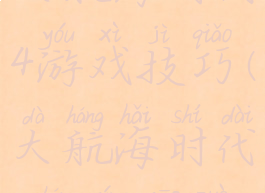 yóu xì jì qiǎo
4游戏技巧(
dà háng hǎi shí dài
大航海时代